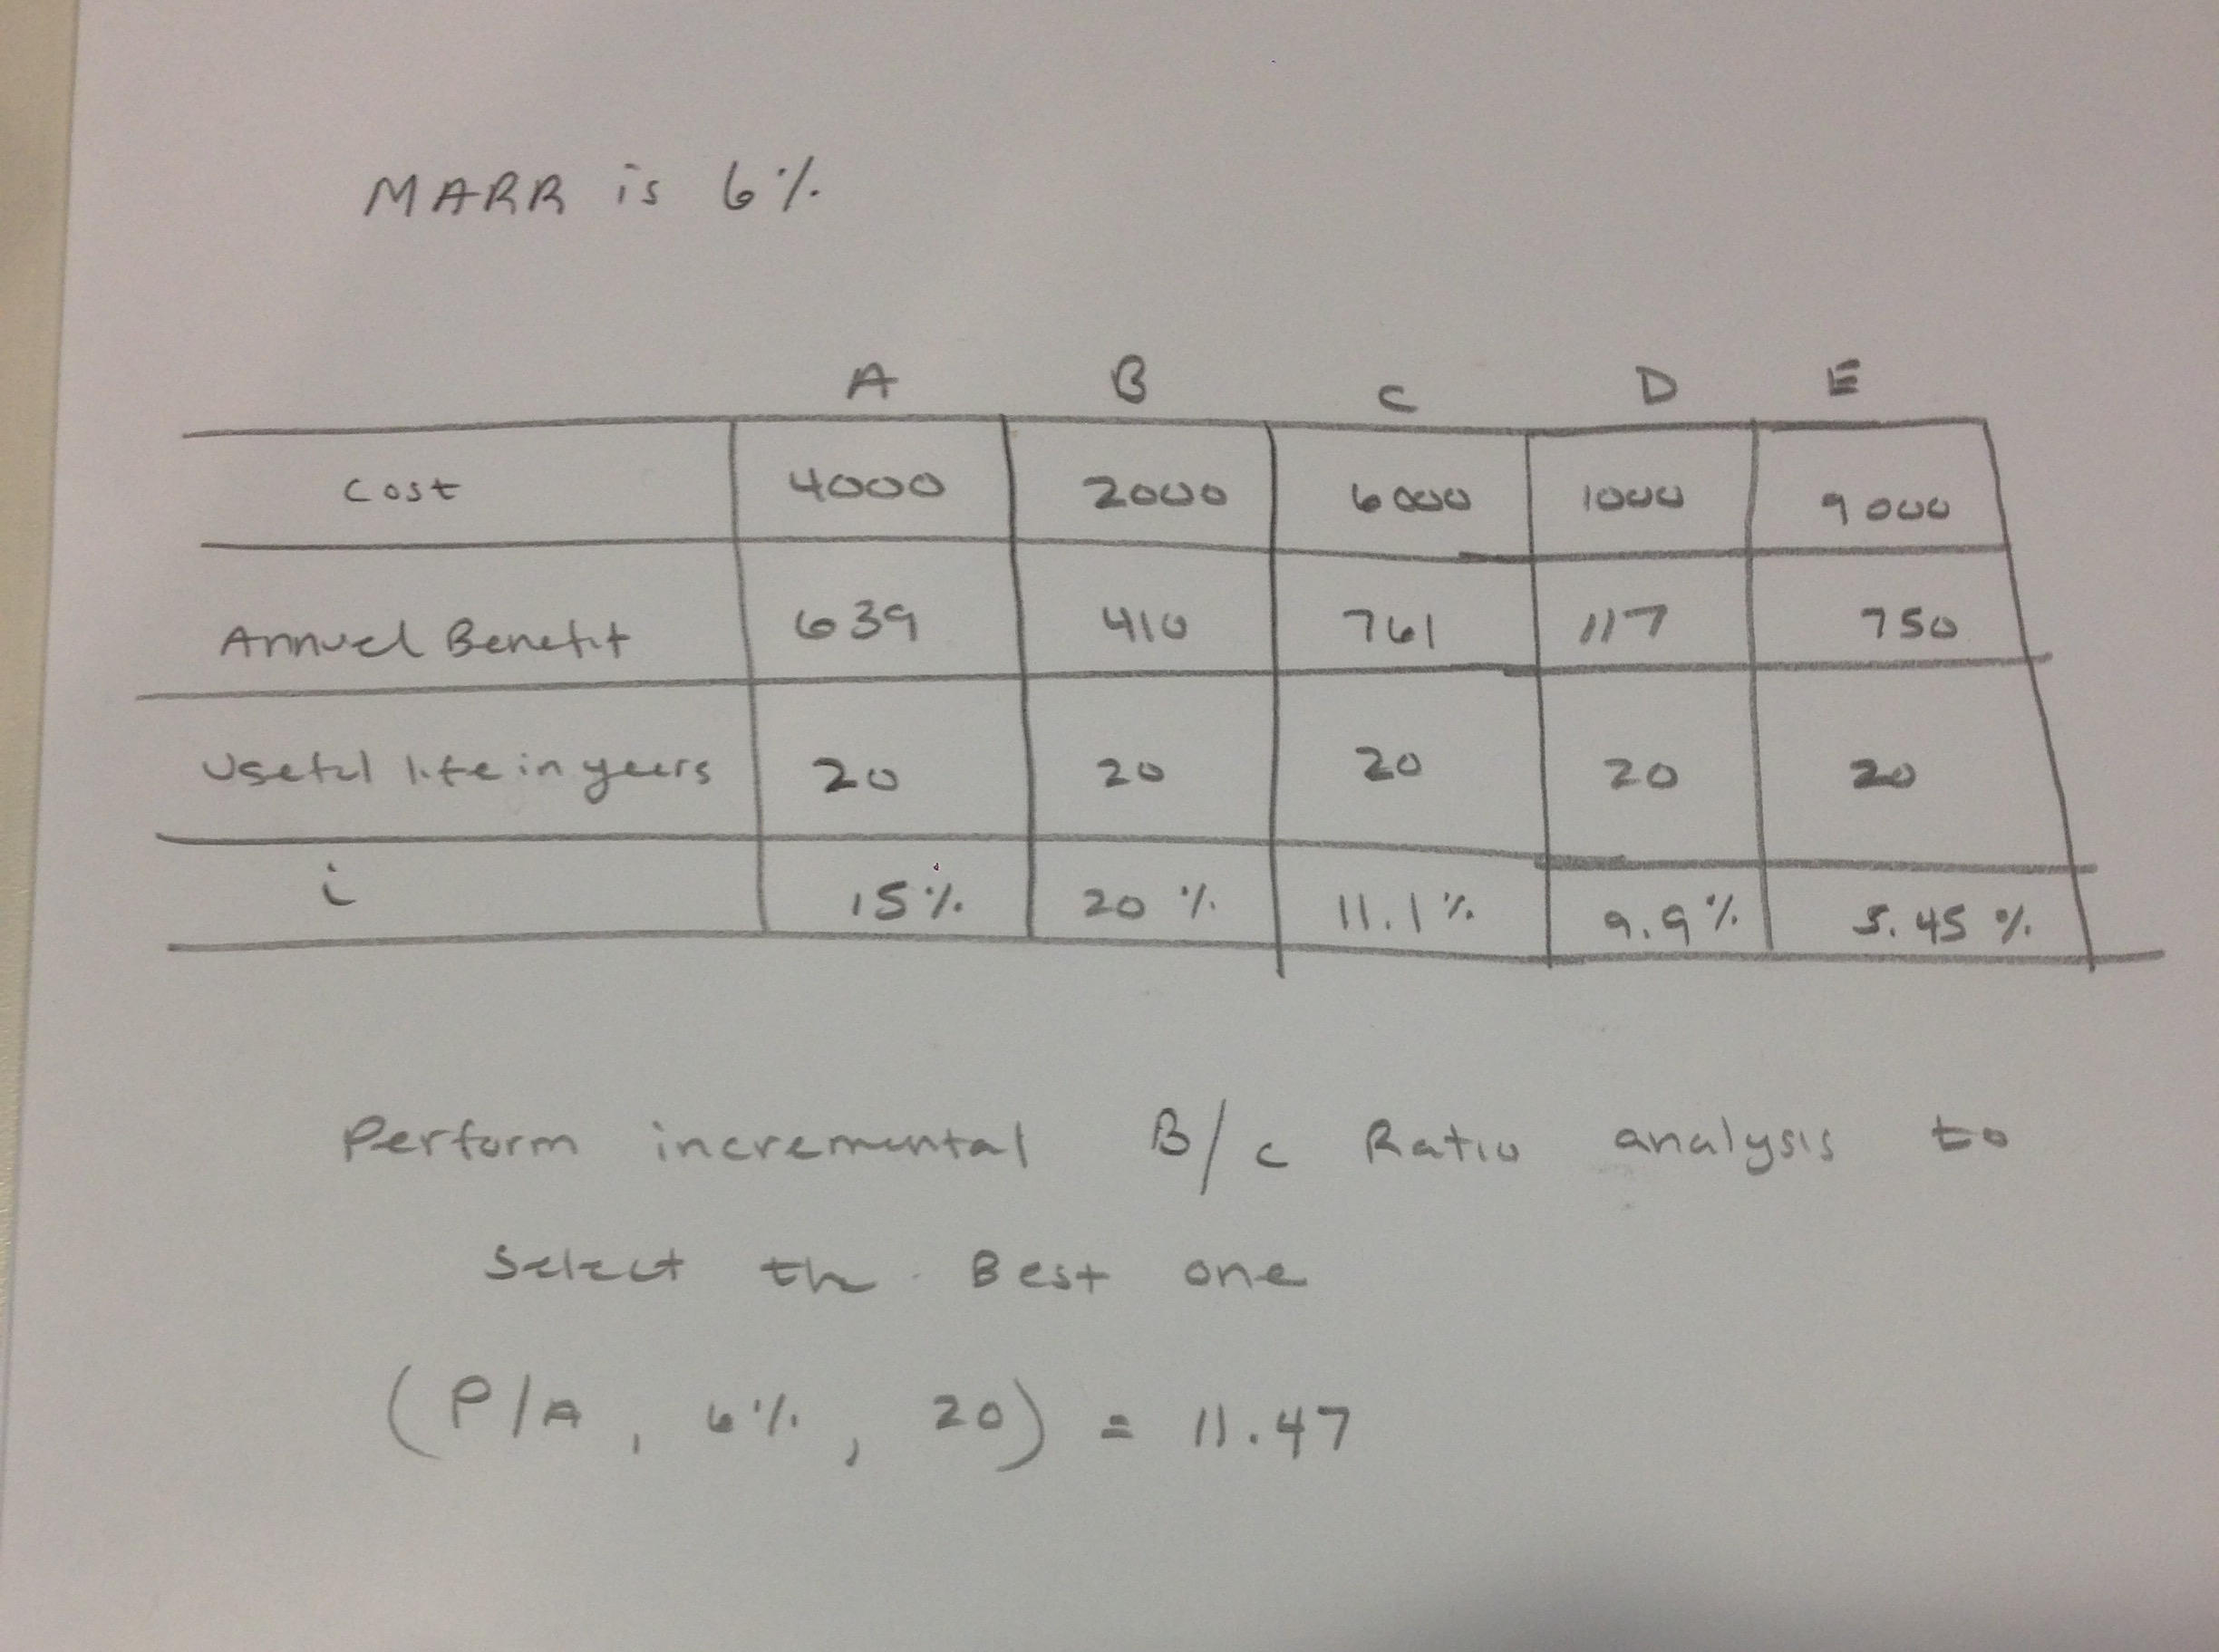 MARR is 6%
A B C D E
Cost 4000 2000 6000 1000 9000
Annual Benefit 639 410 761 117 750
Useful life in years 20 20 20 20 20
i 15% 20% 11.1% 9.9% 5.45%
Perform incremental B/C Ratio analysis to
Select the Best one
(P/A, 6%, 20) = 11.47